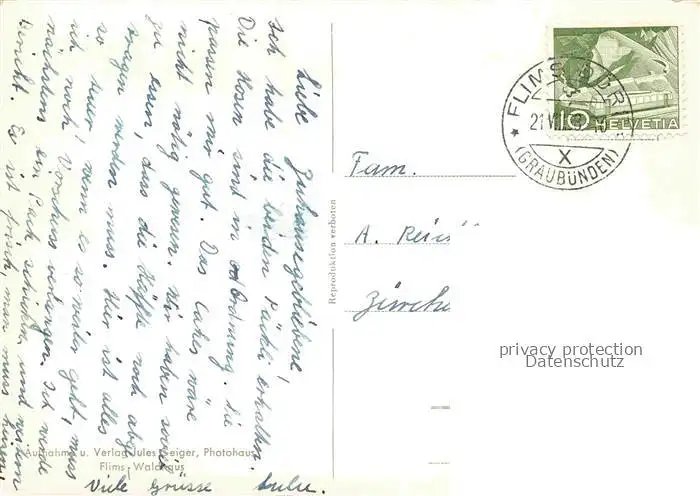 Liebe Zuhausegebliebene!
Ich habe die beiden Päckli erhalten.
Die Hosen sind in Ordnung. Sie
passen mir gut. Das Cakes wäre
nicht nötig gewesen. Wir haben soviel
zu essen, dass die Hälfte noch abge-
tragen werden muss. Hier ist alles
so teuer, wenn es so weiter geht, muss
ich noch Vorschuss verlangen. Ich werde
nächstens ein Pack schicken, und
Bericht. Es ist frisch, man muss
Viele Grüsse
Aufnahme u. Verlag Jules Geiger, Photohaus
Flims-Waldhaus
Reproduktion verboten
FLIMS DORF
21.VII
X
(GRAUBÜNDEN)
10 HELVETIA
Fam.
A.
Zürich
privacy protection
Datenschutz